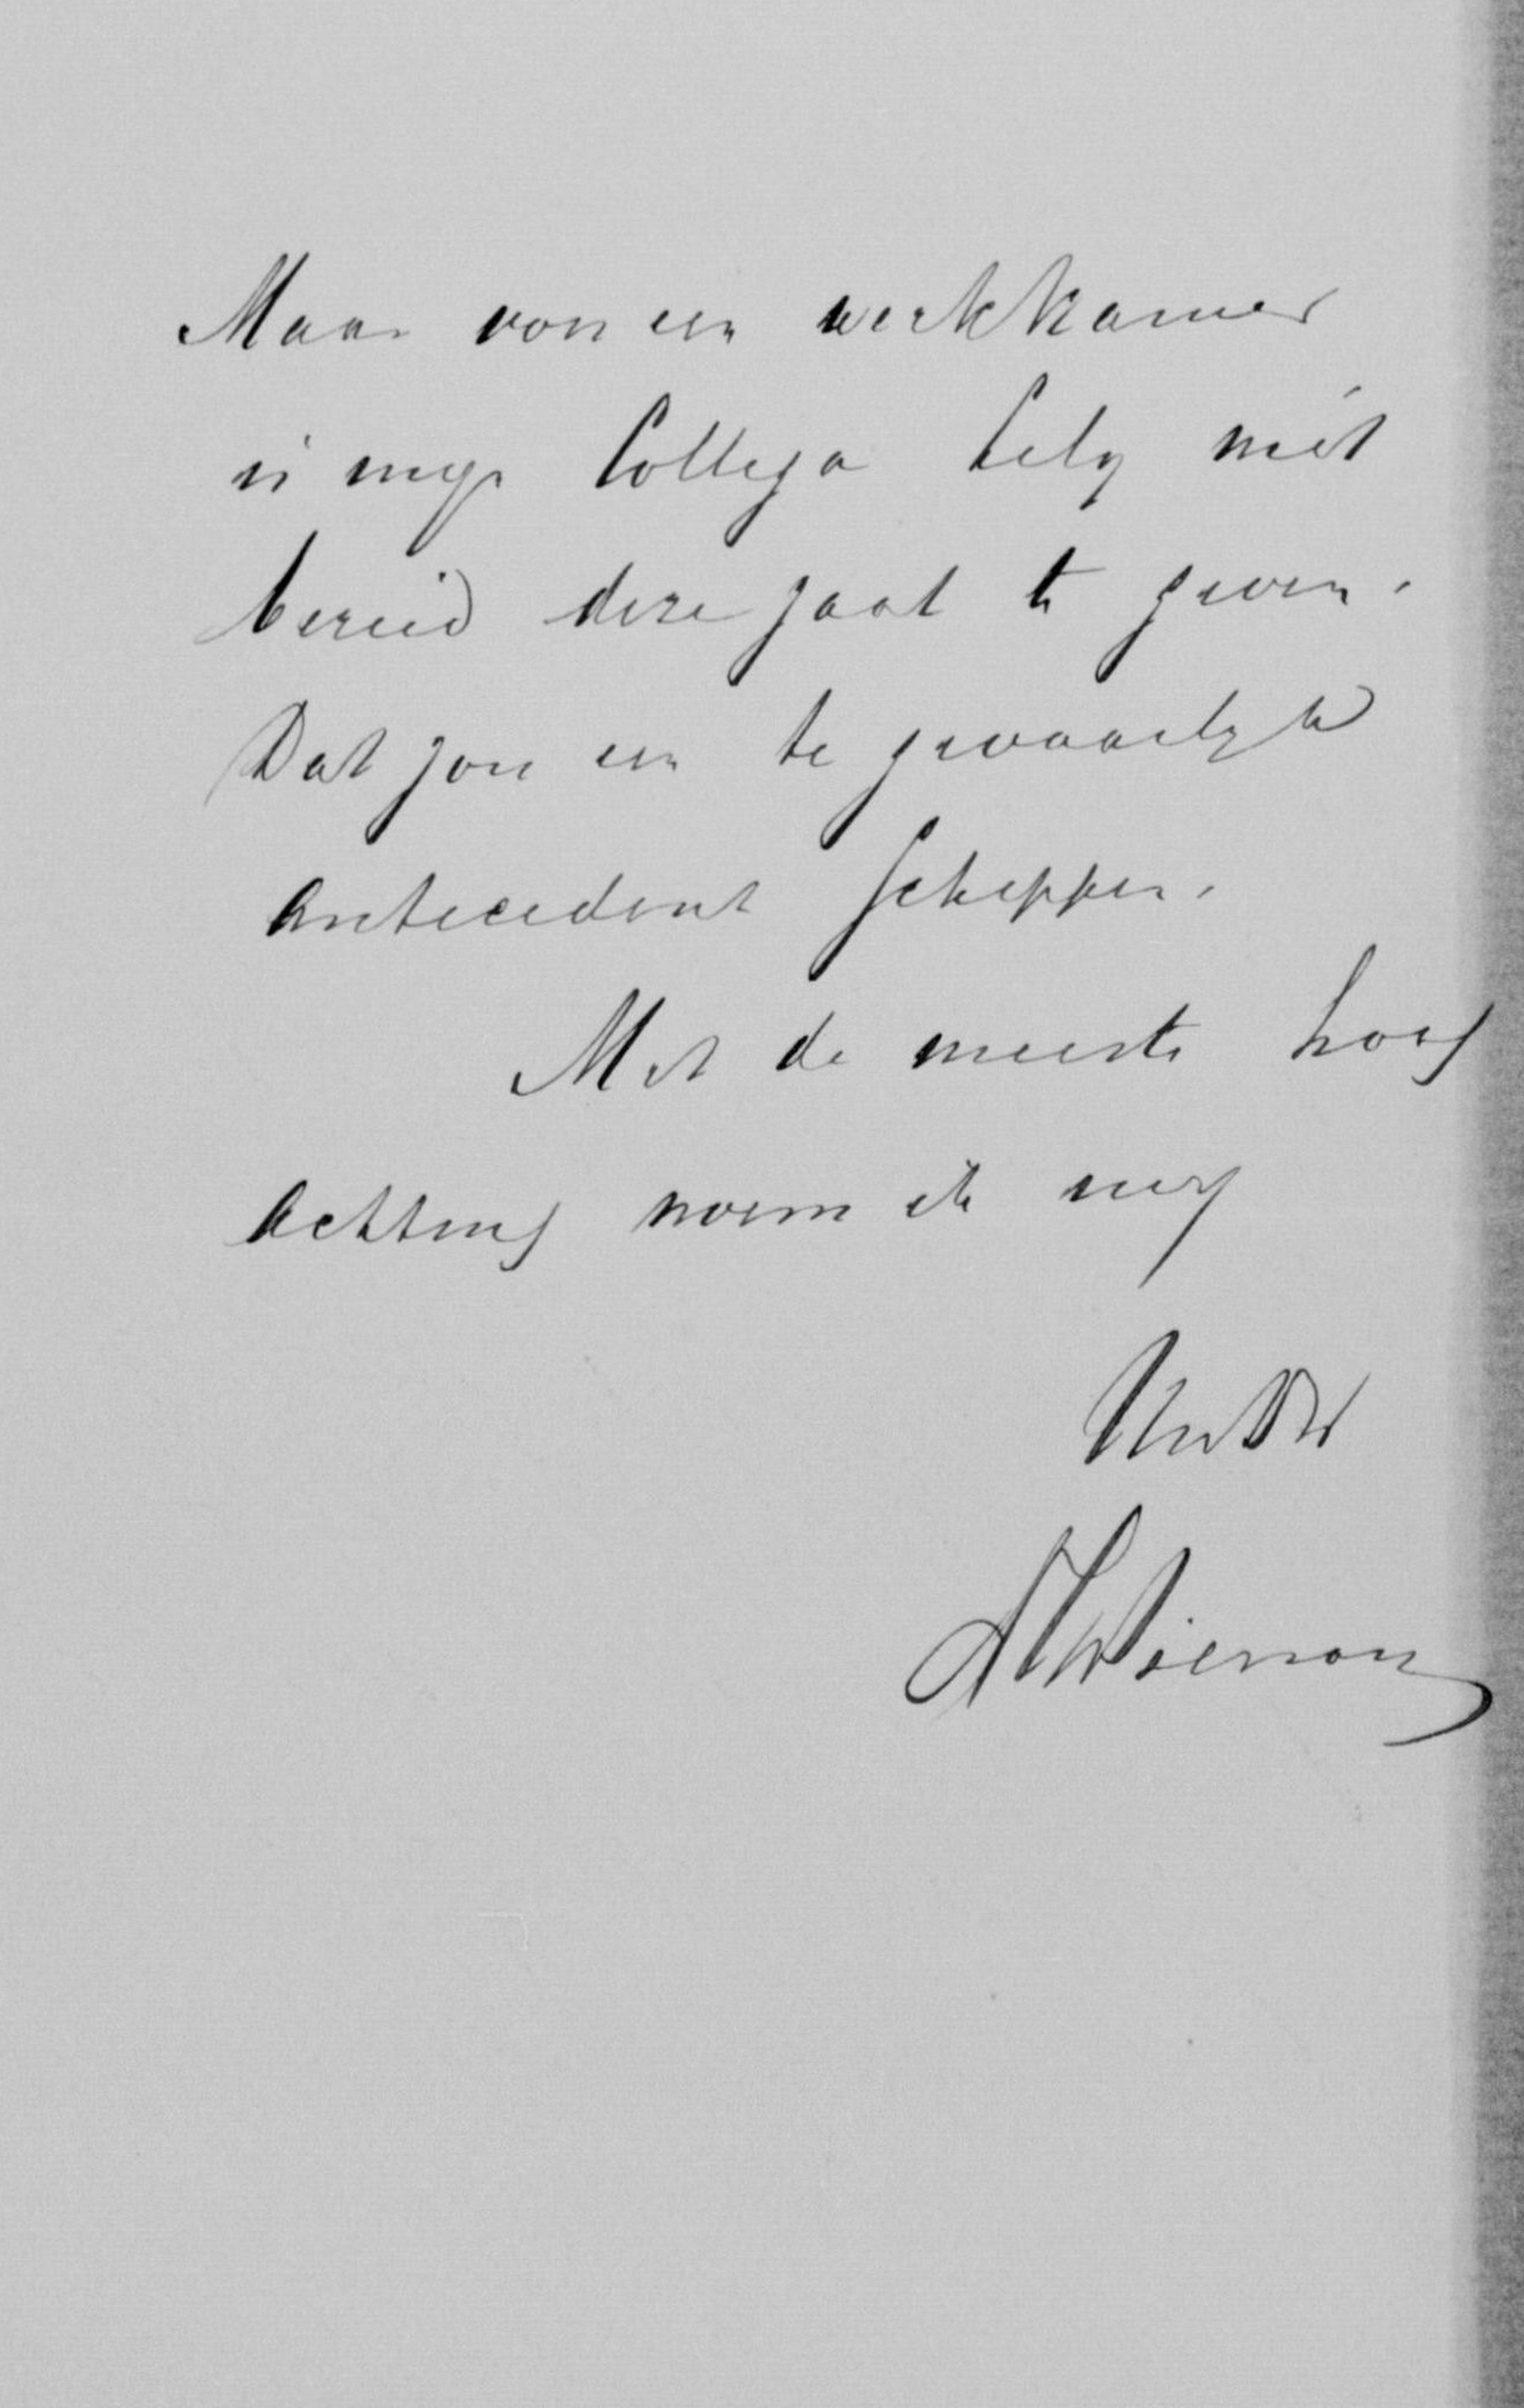 Maar voor een werkkamer
is mijn Collega niet
bereid deze zaal te geven.
Dat zou een te gevaarlijk
antecedent scheppen.
Met de meeste hoog
achting noem ik mij
UwDW